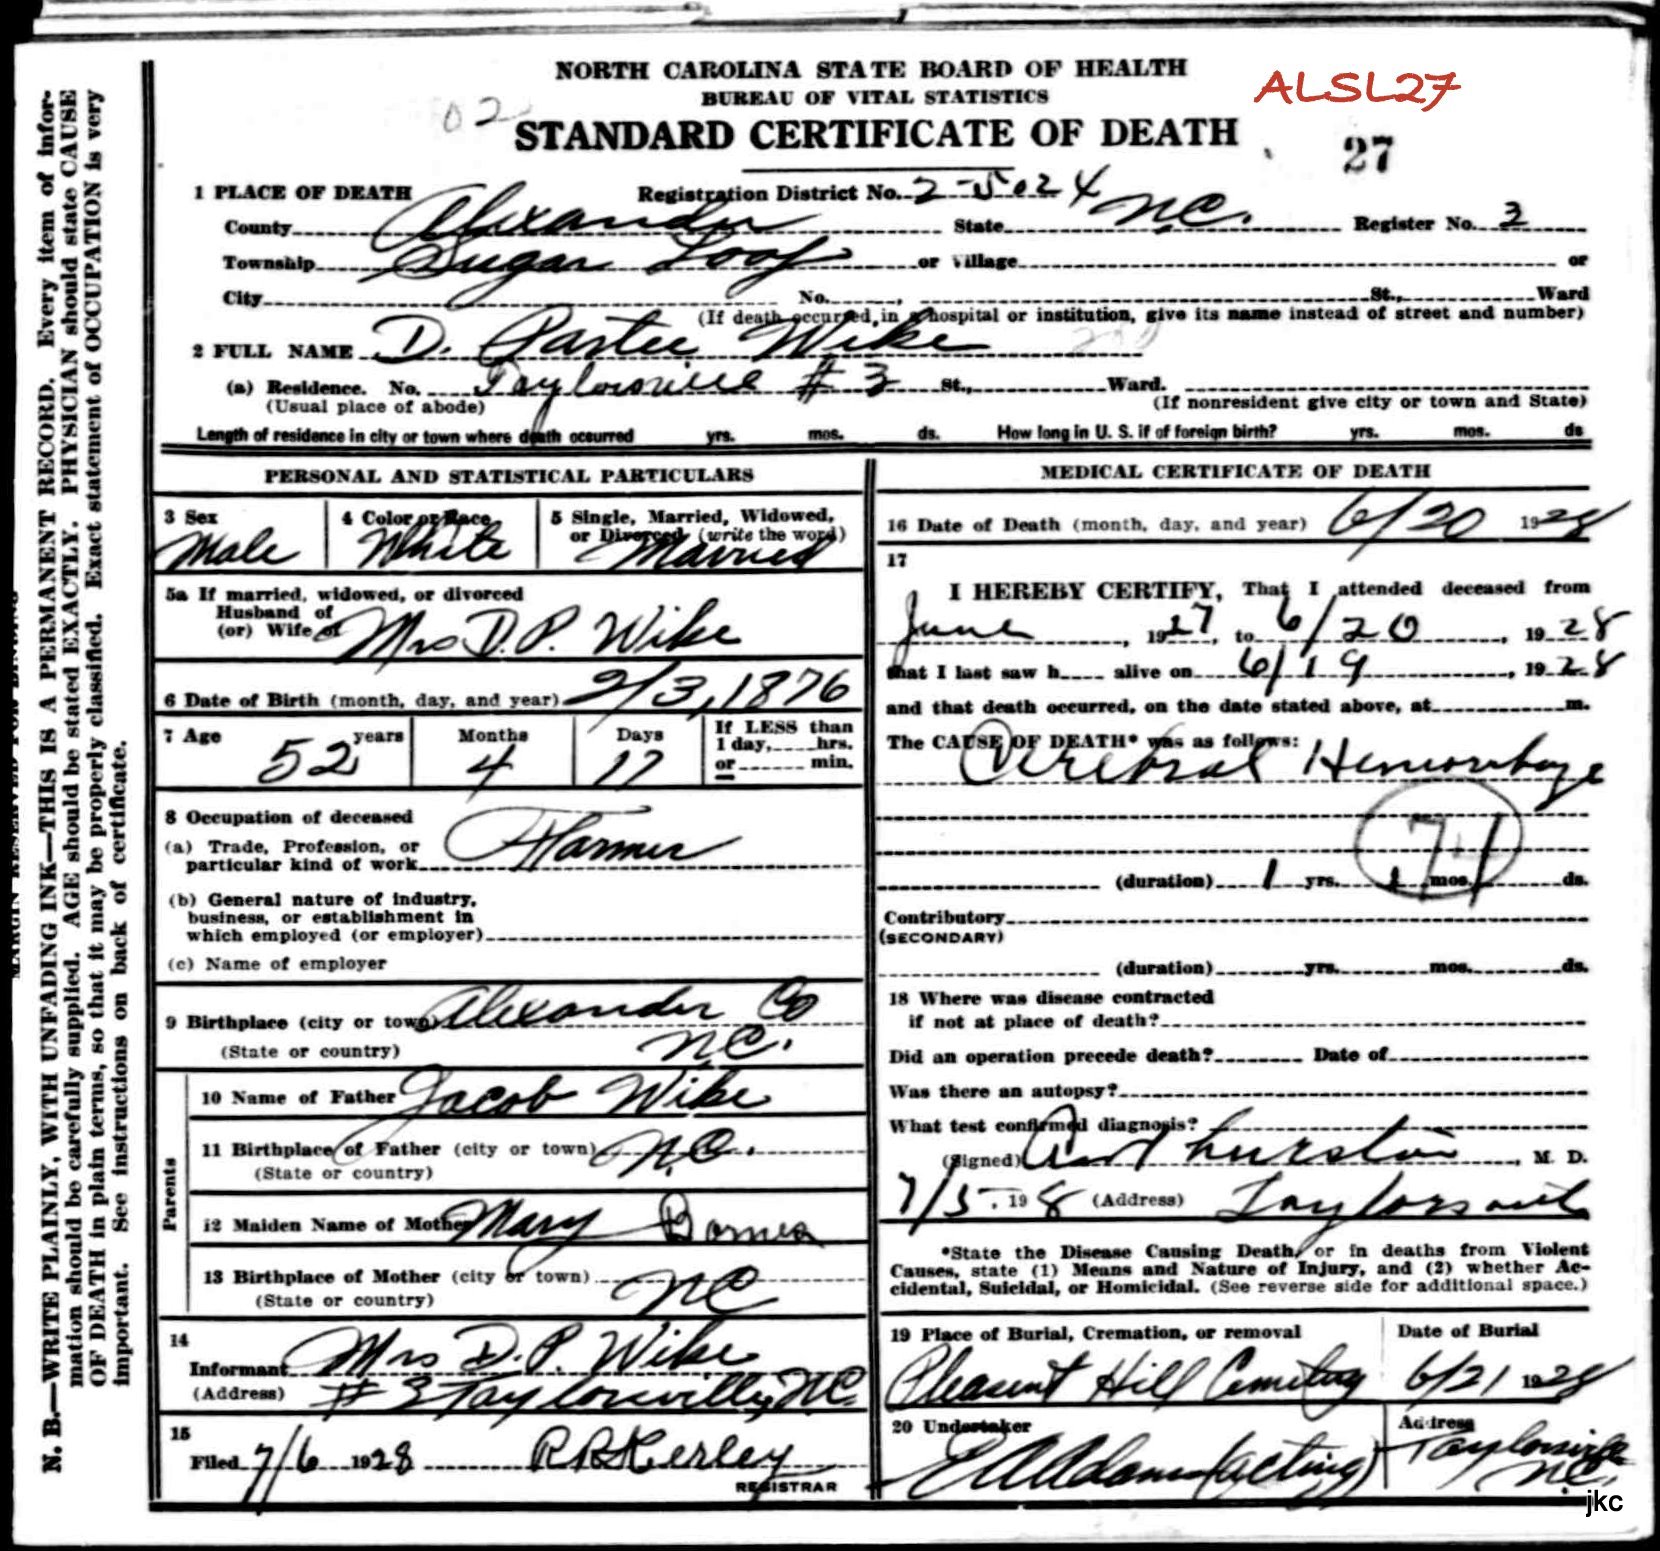 NORTH CAROLINA STATE BOARD OF HEALTH
BUREAU OF VITAL STATISTICS
ALSL27
02
STANDARD CERTIFICATE OF DEATH
27
1 PLACE OF DEATH Registration District No. 2-5024
County Alexander State N.C. Register No. 3
Township Sugar Loaf or Village or
City No. , St., Ward
(If death occurred in a hospital or institution, give its name instead of street and number)
2 FULL NAME D. Partee Wike
(a) Residence. No. Taylorsville # 3 St., Ward.
(Usual place of abode) (If nonresident give city or town and State)
Length of residence in city or town where death occurred yrs. mos. ds. How long in U. S. if of foreign birth? yrs. mos. ds
PERSONAL AND STATISTICAL PARTICULARS
3 Sex 4 Color or Race 5 Single, Married, Widowed,
or Divorced (write the word)
Male White Married
5a If married, widowed, or divorced
Husband of
(or) Wife of Mrs D. P. Wike
6 Date of Birth (month, day, and year) 2/3, 1876
7 Age 52 years Months 4 Days 17 If LESS than
1 day, hrs.
or min.
8 Occupation of deceased
(a) Trade, Profession, or
particular kind of work Farmer
(b) General nature of industry,
business, or establishment in
which employed (or employer)
(c) Name of employer
9 Birthplace (city or town) Alexander Co
(State or country) N.C.
Parents
10 Name of Father Jacob Wike
11 Birthplace of Father (city or town) N.C.
(State or country)
12 Maiden Name of Mother Mary Barnes
13 Birthplace of Mother (city or town) NC
(State or country)
14
Informant Mrs D. P. Wike
(Address) # 3 Taylorsville, N.C.
15
Filed 7/6 1928 R R Kerley
REGISTRAR
MEDICAL CERTIFICATE OF DEATH
16 Date of Death (month, day, and year) 6/20 1928
17
I HEREBY CERTIFY, That I attended deceased from
June , 1927, to 6/20 , 1928
that I last saw h alive on 6/19 , 1928
and that death occurred, on the date stated above, at m.
The CAUSE OF DEATH* was as follows:
Cerebral Hemorrhage
74
(duration) 1 yrs. 1 mos. ds.
Contributory
(SECONDARY)
(duration) yrs. mos. ds.
18 Where was disease contracted
if not at place of death?
Did an operation precede death? Date of
Was there an autopsy?
What test confirmed diagnosis?
(Signed) Thurston , M. D.
7/5. 19 8 (Address) Taylorsville
*State the Disease Causing Death, or in deaths from Violent
Causes, state (1) Means and Nature of Injury, and (2) whether Ac-
cidental, Suicidal, or Homicidal. (See reverse side for additional space.)
19 Place of Burial, Cremation, or removal Date of Burial
Pleasant Hill Cemetery 6/21 1928
20 Undertaker Address
E A Adams (acting) Taylorsville
N.C.
jkc
MARGIN RESERVED FOR BINDING
N. B.—WRITE PLAINLY, WITH UNFADING INK—THIS IS A PERMANENT RECORD. Every item of infor-
mation should be carefully supplied. AGE should be stated EXACTLY. PHYSICIAN should state CAUSE
OF DEATH in plain terms, so that it may be properly classified. Exact statement of OCCUPATION is very
important. See instructions on back of certificate.